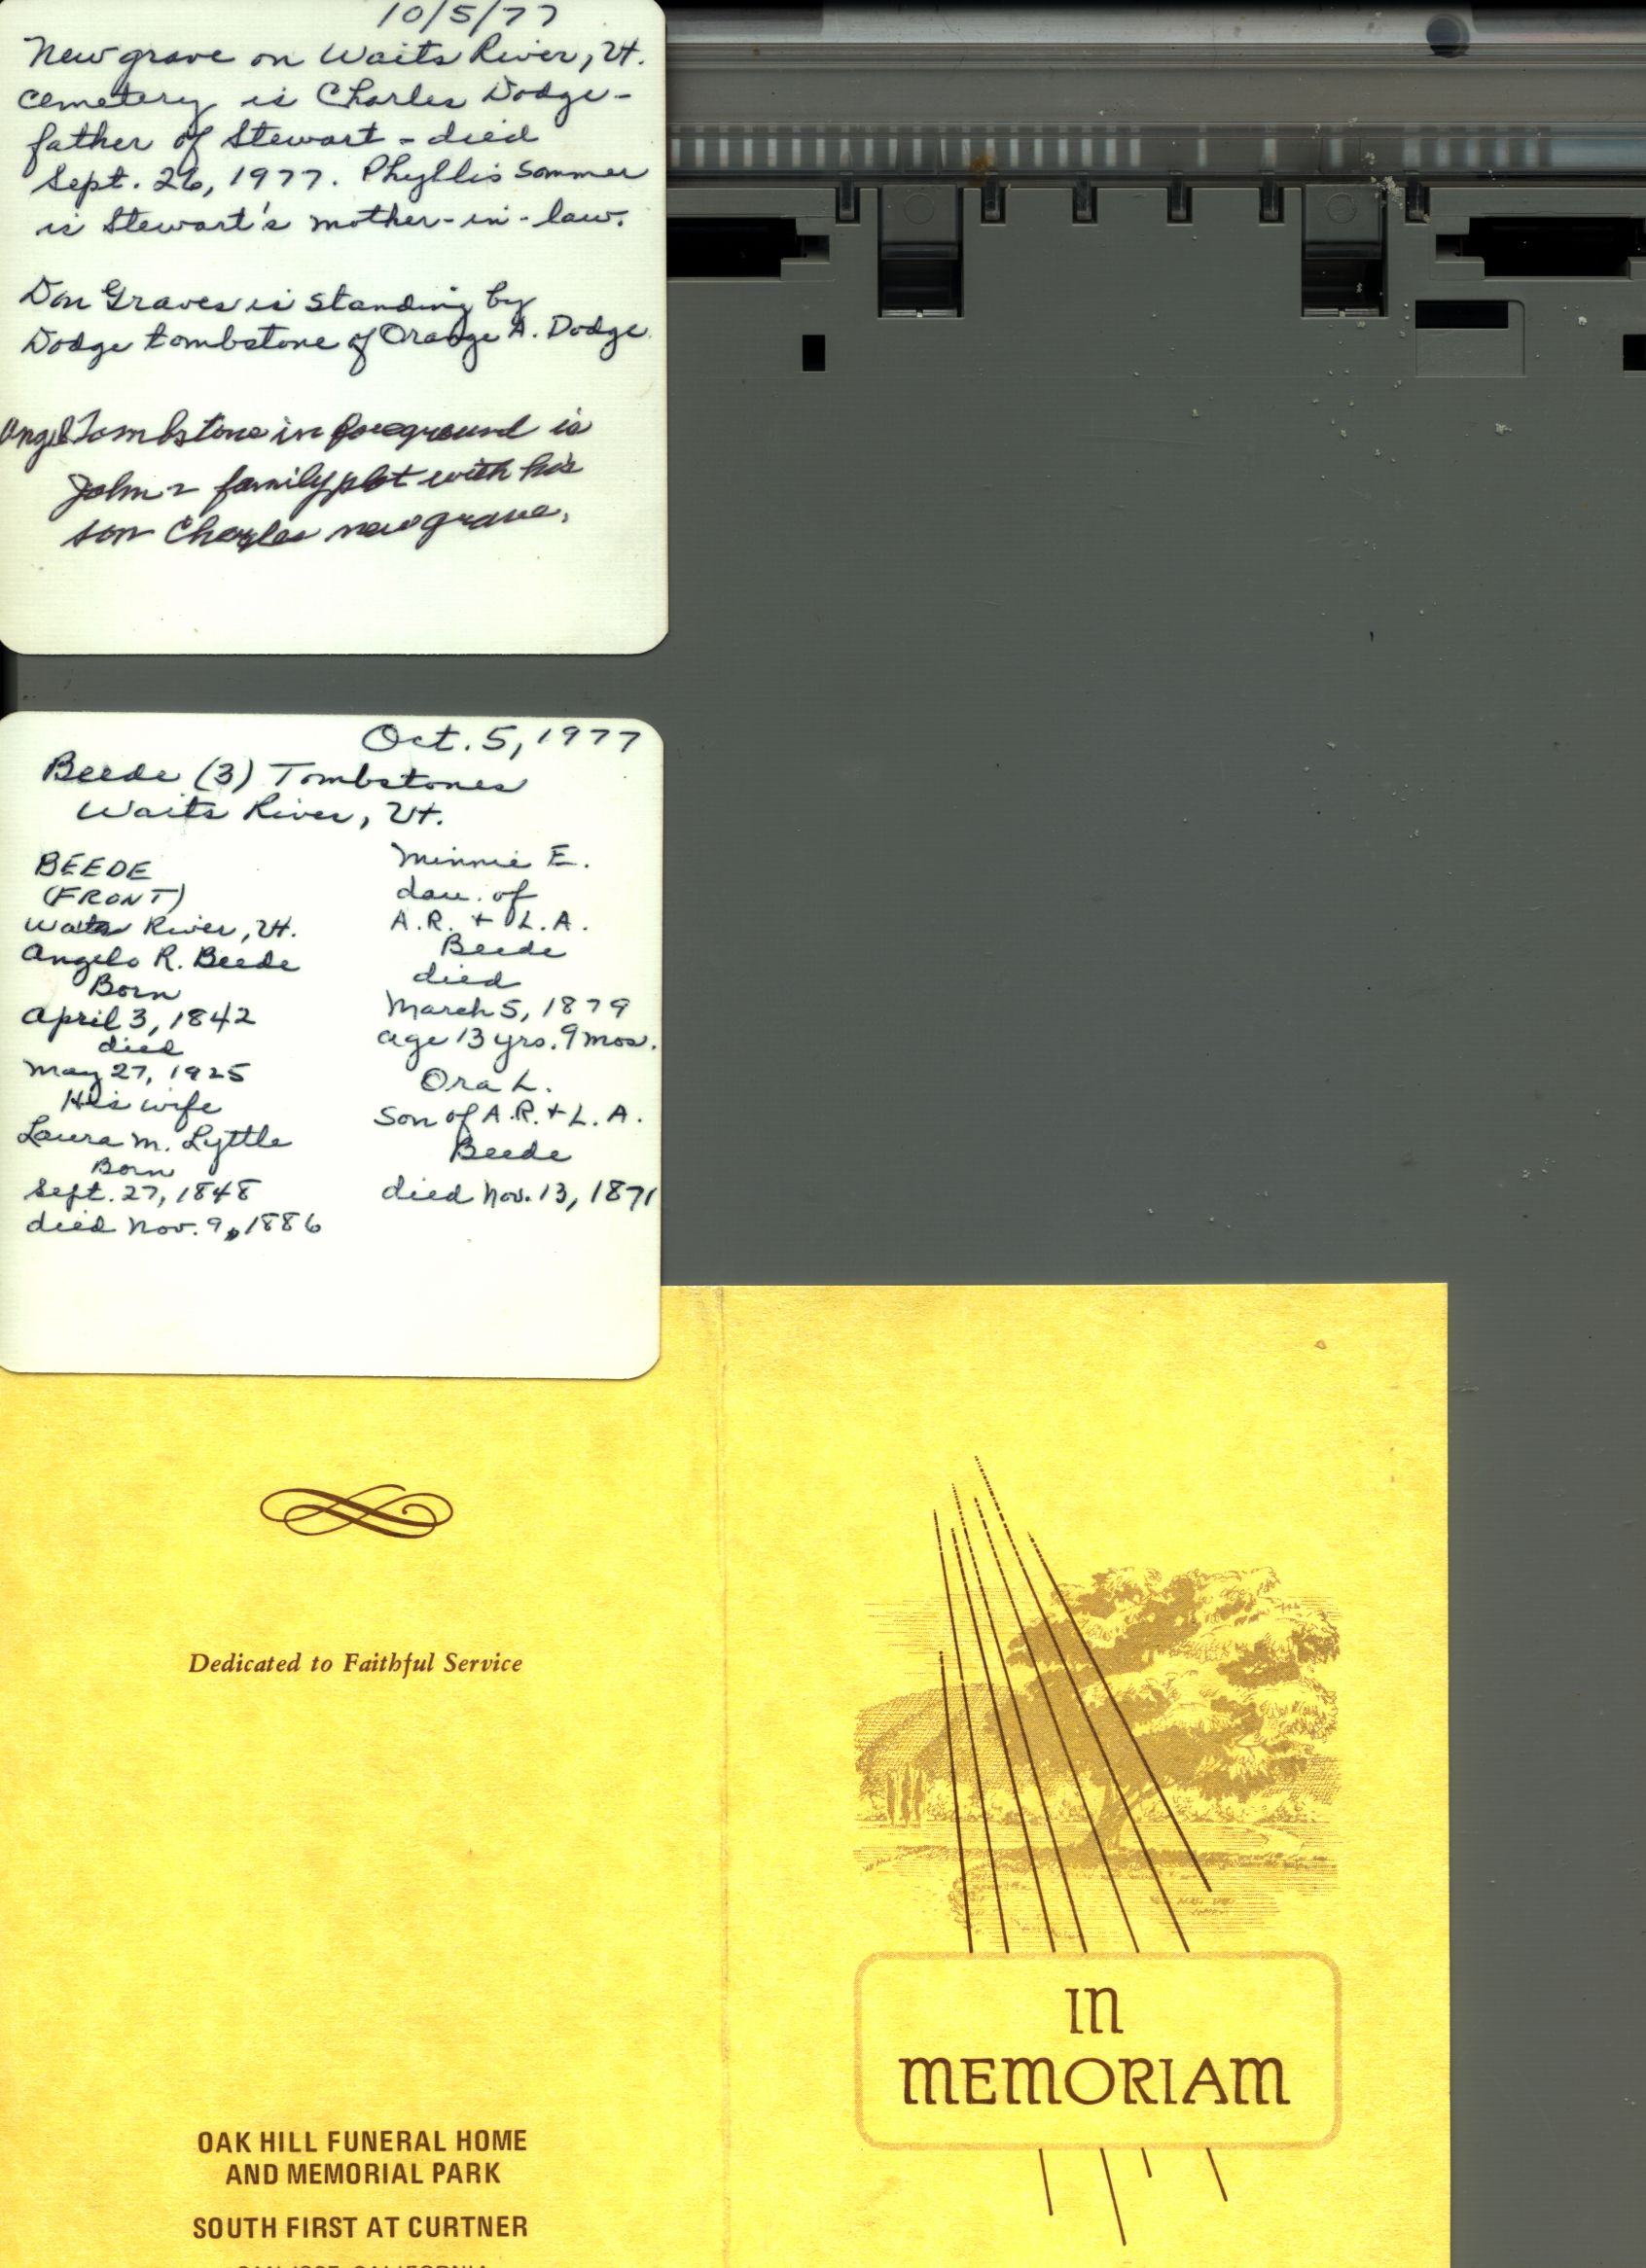 10/5/77
New grave on Waits River, Vt.
cemetery is Charles Dodge -
father of Stewart - died
Sept. 26, 1977. Phyllis Sommer
is Stewart's mother-in-law.
Don Graves is standing by
Dodge tombstone of Orange A. Dodge.
Angel Tombstone in foreground is
John's family plot with his
son Charles new grave.
Oct. 5, 1977
Beede (3) Tombstones
Waits River, Vt.
BEEDE
(FRONT)
Waits River, Vt.
Angelo R. Beede
Born
April 3, 1842
died
May 27, 1925
His wife
Laura M. Lyttle
Born
Sept. 27, 1848
died Nov. 9, 1886
Minnie E.
dau. of
A.R. + L.A.
Beede
died
March 5, 1879
age 13 yrs. 9 mos.
Ora L.
Son of A.R. + L.A.
Beede
died Nov. 13, 1871
Dedicated to Faithful Service
OAK HILL FUNERAL HOME
AND MEMORIAL PARK
SOUTH FIRST AT CURTNER
SAN JOSE, CALIFORNIA
IN
MEMORIAM